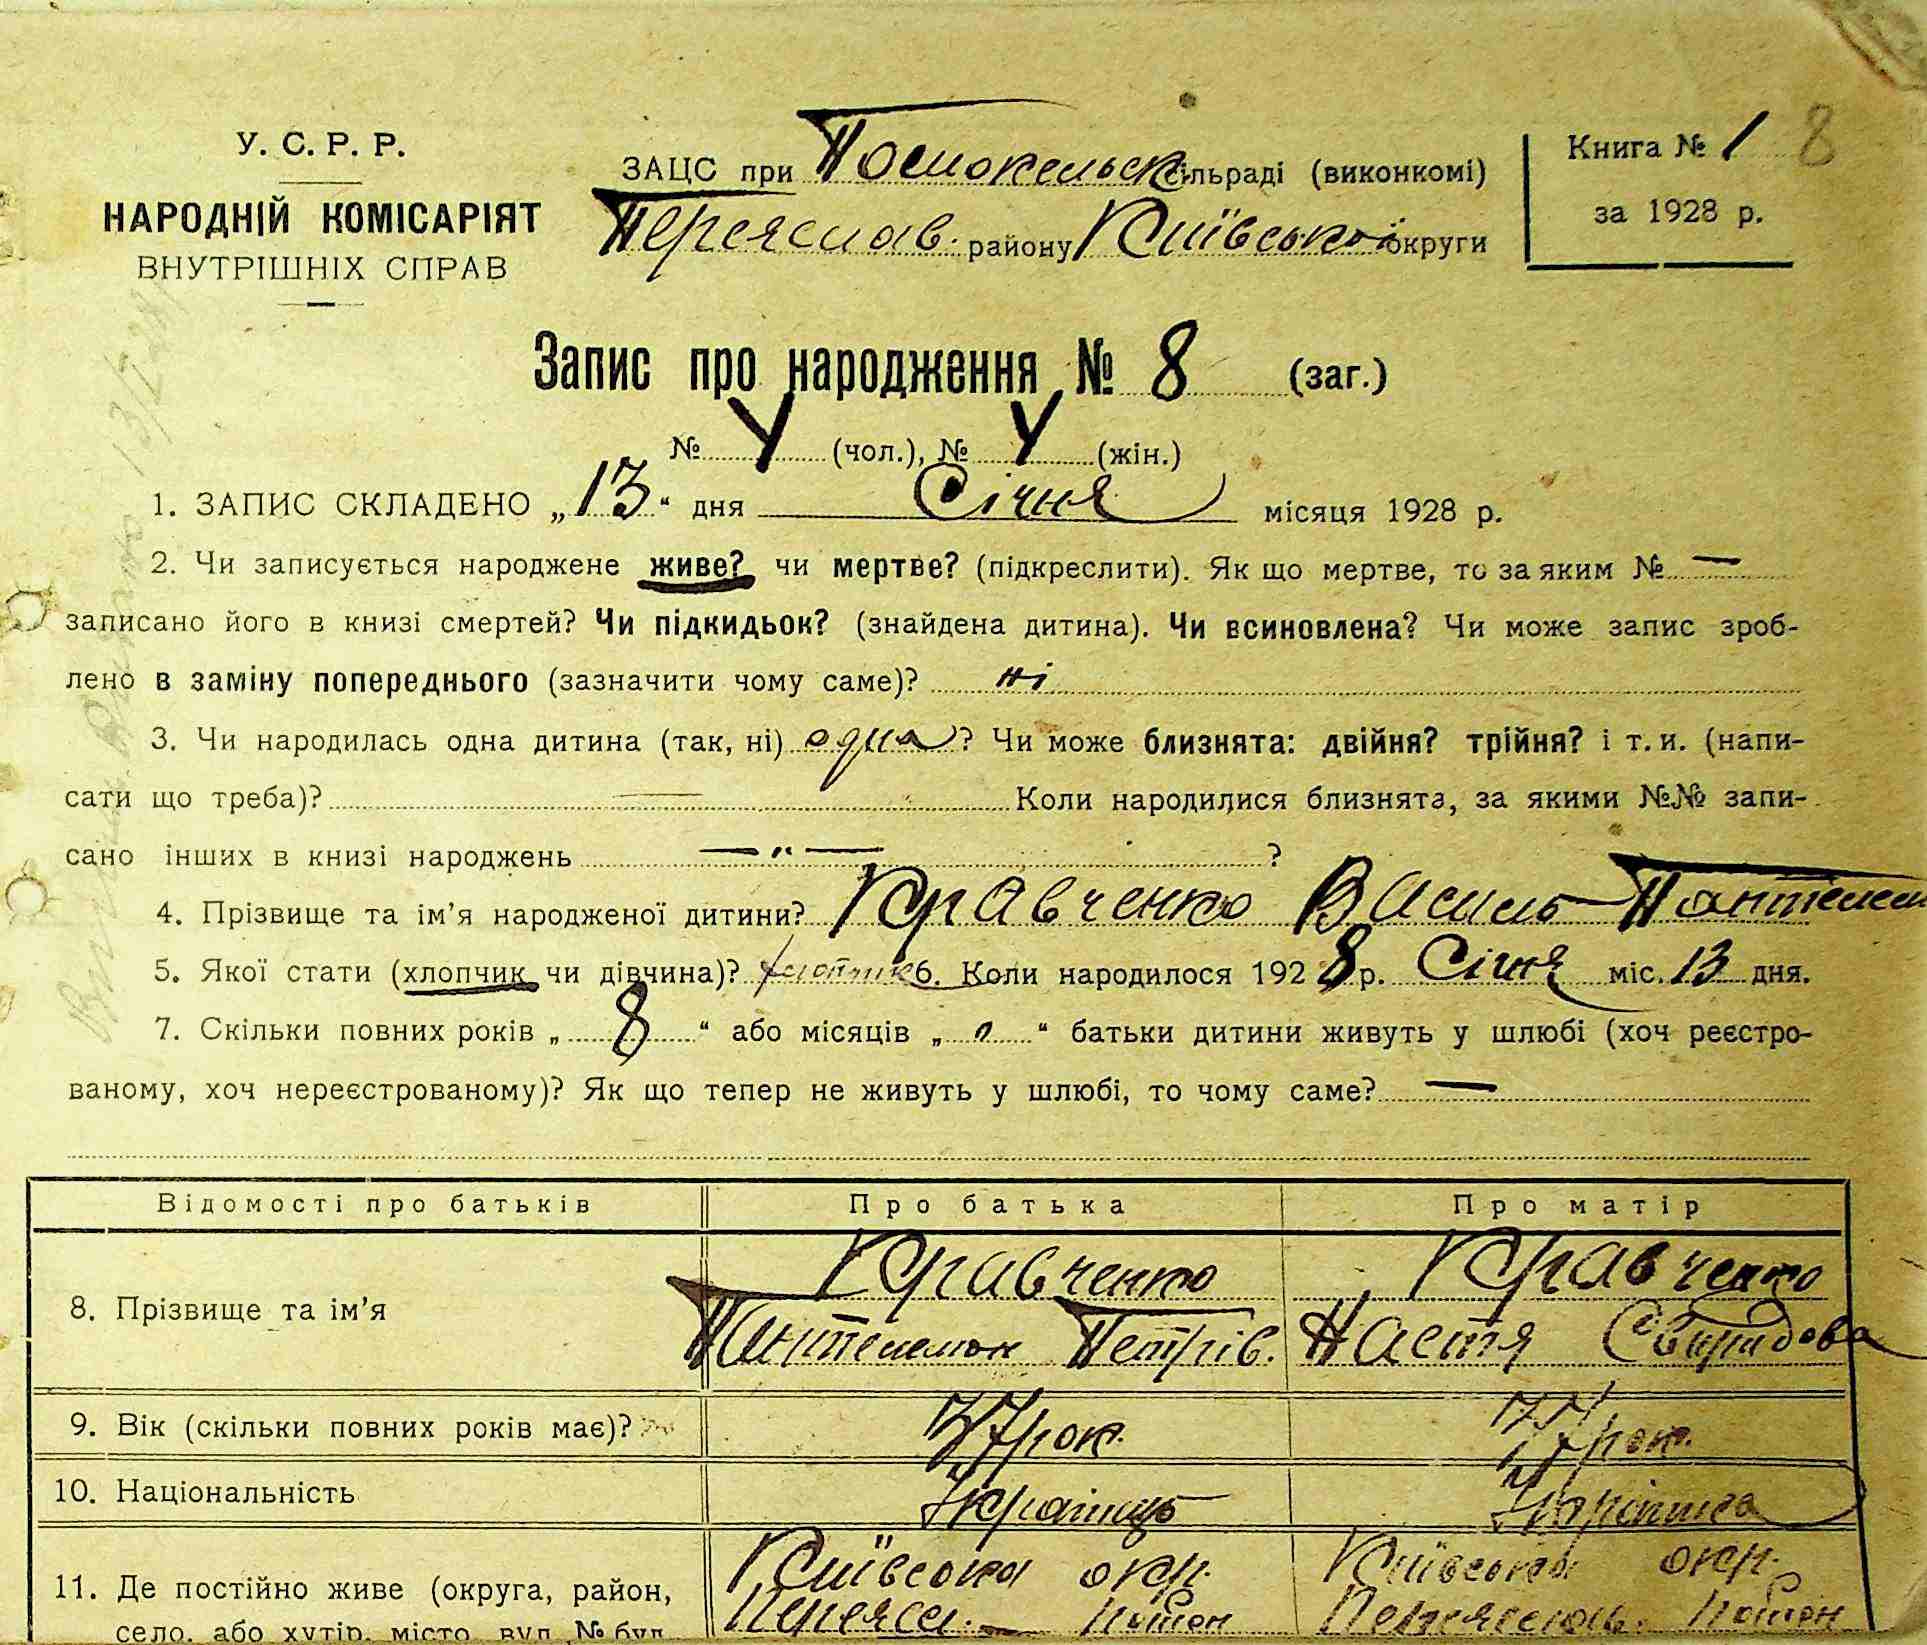 У. С. Р. Р.
НАРОДНІЙ КОМІСАРІЯТ
ВНУТРІШНІХ СПРАВ
ЗАЦС при Помокельск сільраді (виконкомі)
Переяслав. району Київської округи
Книга № 1 8
за 1928 р.
Запис про народження № 8 (заг.)
№ У (чол.), № У (жін.)
1. ЗАПИС СКЛАДЕНО „13“ дня Січня місяця 1928 р.
2. Чи записується народжене живе? чи мертве? (підкреслити). Як що мертве, то за яким № —
записано його в книзі смертей? Чи підкидьок? (знайдена дитина). Чи всиновлена? Чи може запис зроб-
лено в заміну попереднього (зазначити чому саме)? ні
3. Чи народилась одна дитина (так, ні) одна? Чи може близнята: двійня? трійня? і т. и. (напи-
сати що треба)? — Коли народилися близнята, за якими №№ запи-
сано інших в книзі народжень — " — ?
4. Прізвище та ім’я народженої дитини? Кравченко Василь Пантелем
5. Якої стати (хлопчик чи дівчина)? хлопчик 6. Коли народилося 1928 р. Січня міс. 13 дня.
7. Скільки повних років „8“ або місяців „ “ батьки дитини живуть у шлюбі (хоч реєстро-
ваному, хоч нереєстрованому)? Як що тепер не живуть у шлюбі, то чому саме? —
Відомості про батьків Про батька Про матір
8. Прізвище та ім’я
Кравченко
Пантелемон Петрів.
Кравченко
Настя Свиридова
9. Вік (скільки повних років має)? 37 рок. рок.
10. Національність Українць Українка
11. Де постійно живе (округа, район,
село, або хутір, місто, вул., № буд.
Київська окр.
Переясл.
Київська окр.
Переяслав.